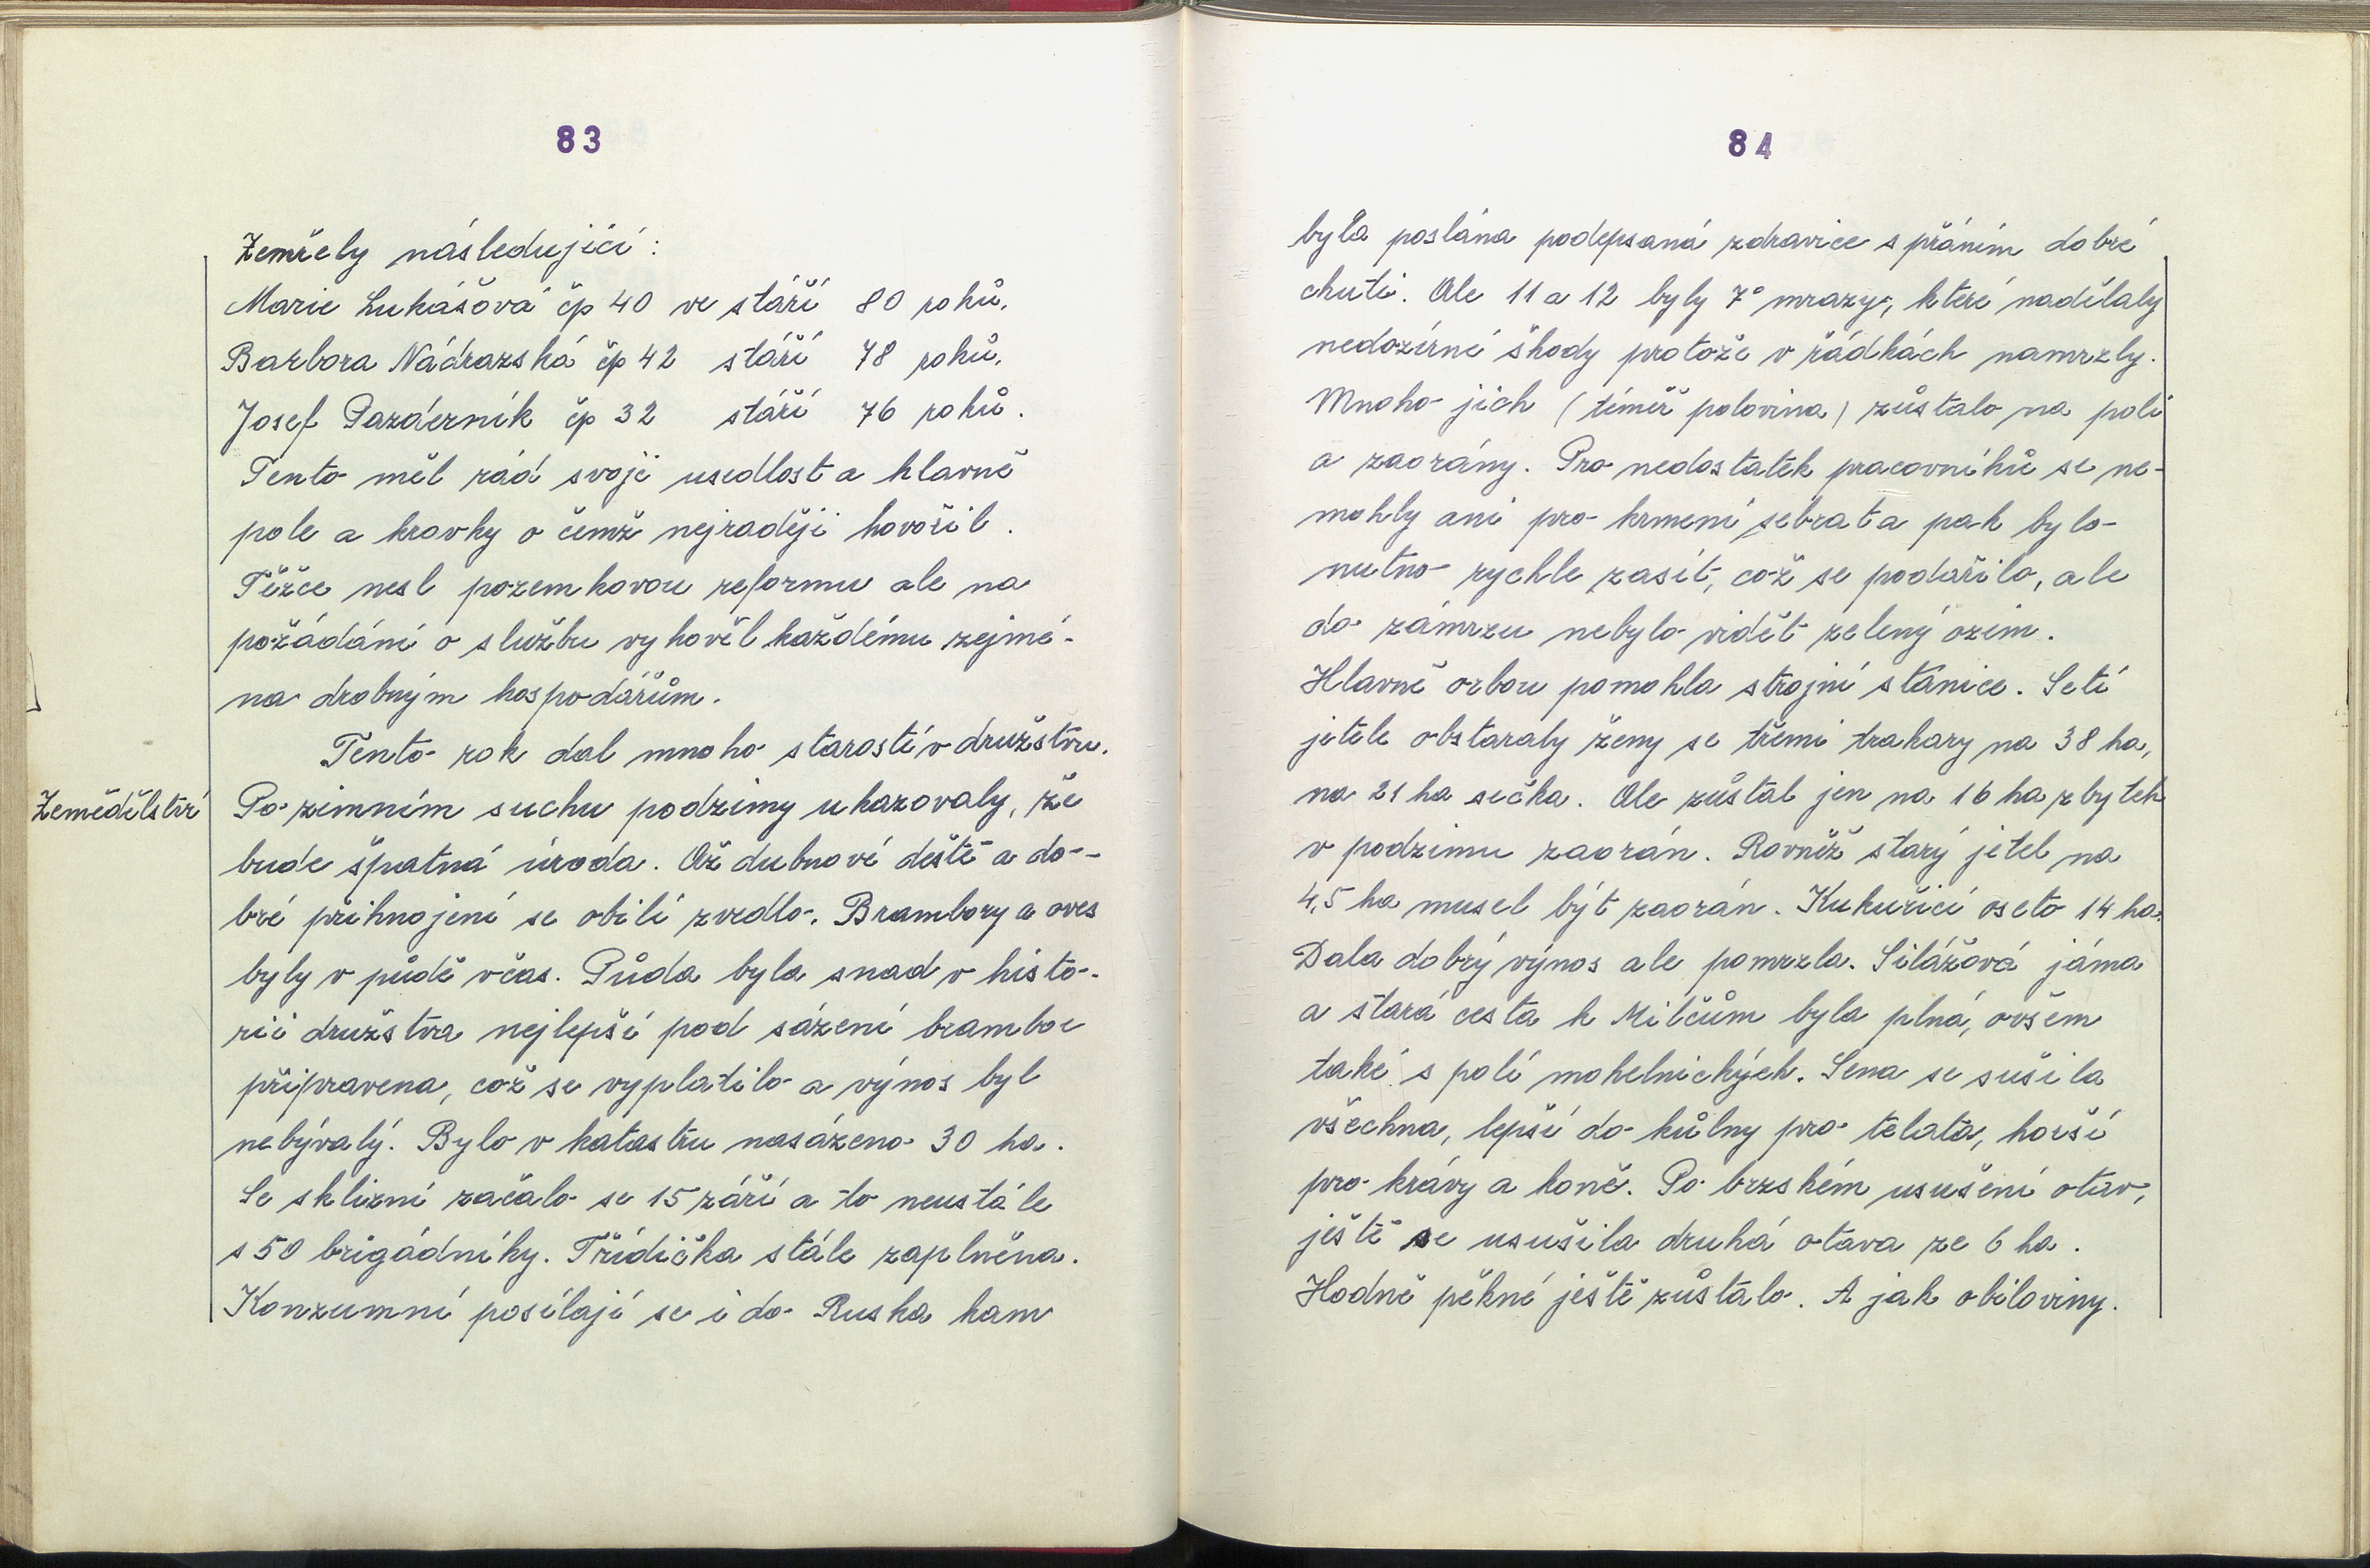 83
Zemřely následující:
Marie Lukášová čp 40 ve stáří 80 roků,
Barbora Nádrazská čp 42 stáří 78 roků,
Josef Pazderník čp 32 stáří 76 roků.
Tento měl rád svoji usedlost a hlavně
pole a kravky o čemž nejraději hovořil.
Těžce nesl pozemkovou reformu ale na
požádání o službu vyhověl každému zejmé-
na drobným hospodářům.
Tento rok dal mnoho starostí v družstvu.
Zemědělství
Po zimním suchu podzimy ukazovaly, že
bude špatná úroda. Až dubnové deště a do-
bré přihnojení se obilí zvedlo. Brambory a oves
byly v půdě včas. Půda byla snad v histo-
rii družstva nejlepší pod sázení brambor
připravena, což se vyplatilo a výnos byl
nebývalý. Bylo v katastru nasázeno 30 ha.
Se sklizní začalo se 15 září a to neustále
s 50 brigádníky. Třídička stále zaplněna.
Konzumní posílají se i do Ruska kam
84
byla poslána podepsaná zdravice s přáním dobré
chuti. Ale 11 a 12 byly 7° mrazy, které nadělaly
nedozírné škody protože v řádkách namrzly.
Mnoho jich (téměř polovina) zůstalo na poli
a zaorány. Pro nedostatek pracovníků se ne-
mohly ani pro krmení sebrat a pak bylo
nutno rychle zasít, což se podařilo, ale
do zámrzu nebylo vidět zelený ozim.
Hlavně orbou pomohla strojní stanice. Setí
jetele obstaraly ženy se třemi trakary na 38 ha,
na 21 ha sečka. Ale zůstal jen na 16 ha zbytek
v podzimu zaorán. Rovněž starý jetel na
4,5 ha musel být zaorán. Kukuřicí oseto 14 ha.
Dala dobrý výnos ale pomrzla. Silážová jáma
a stará cesta k Milčům byla plná, ovšem
také s polí mohelnických. Sena se sušila
všechna, lepší do kůlny pro telata, horší
pro krávy a koně. Po brzském usušení otav,
ještě se usušila druhá otava ze 6 ha.
Hodně pěkné ještě zůstalo. A jak obiloviny.